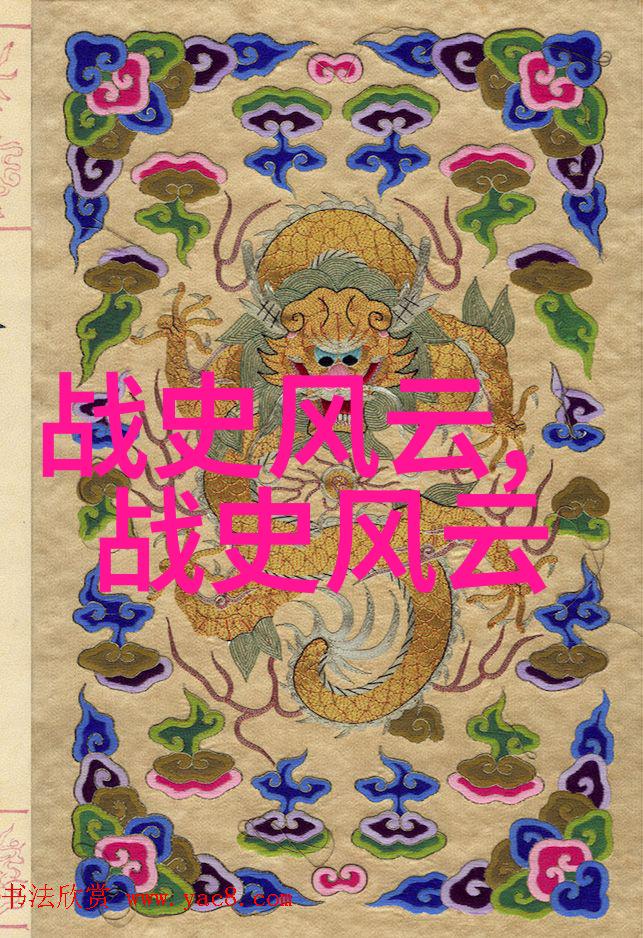 战史风云,
战史风云
书法欣赏 www.yac8.com